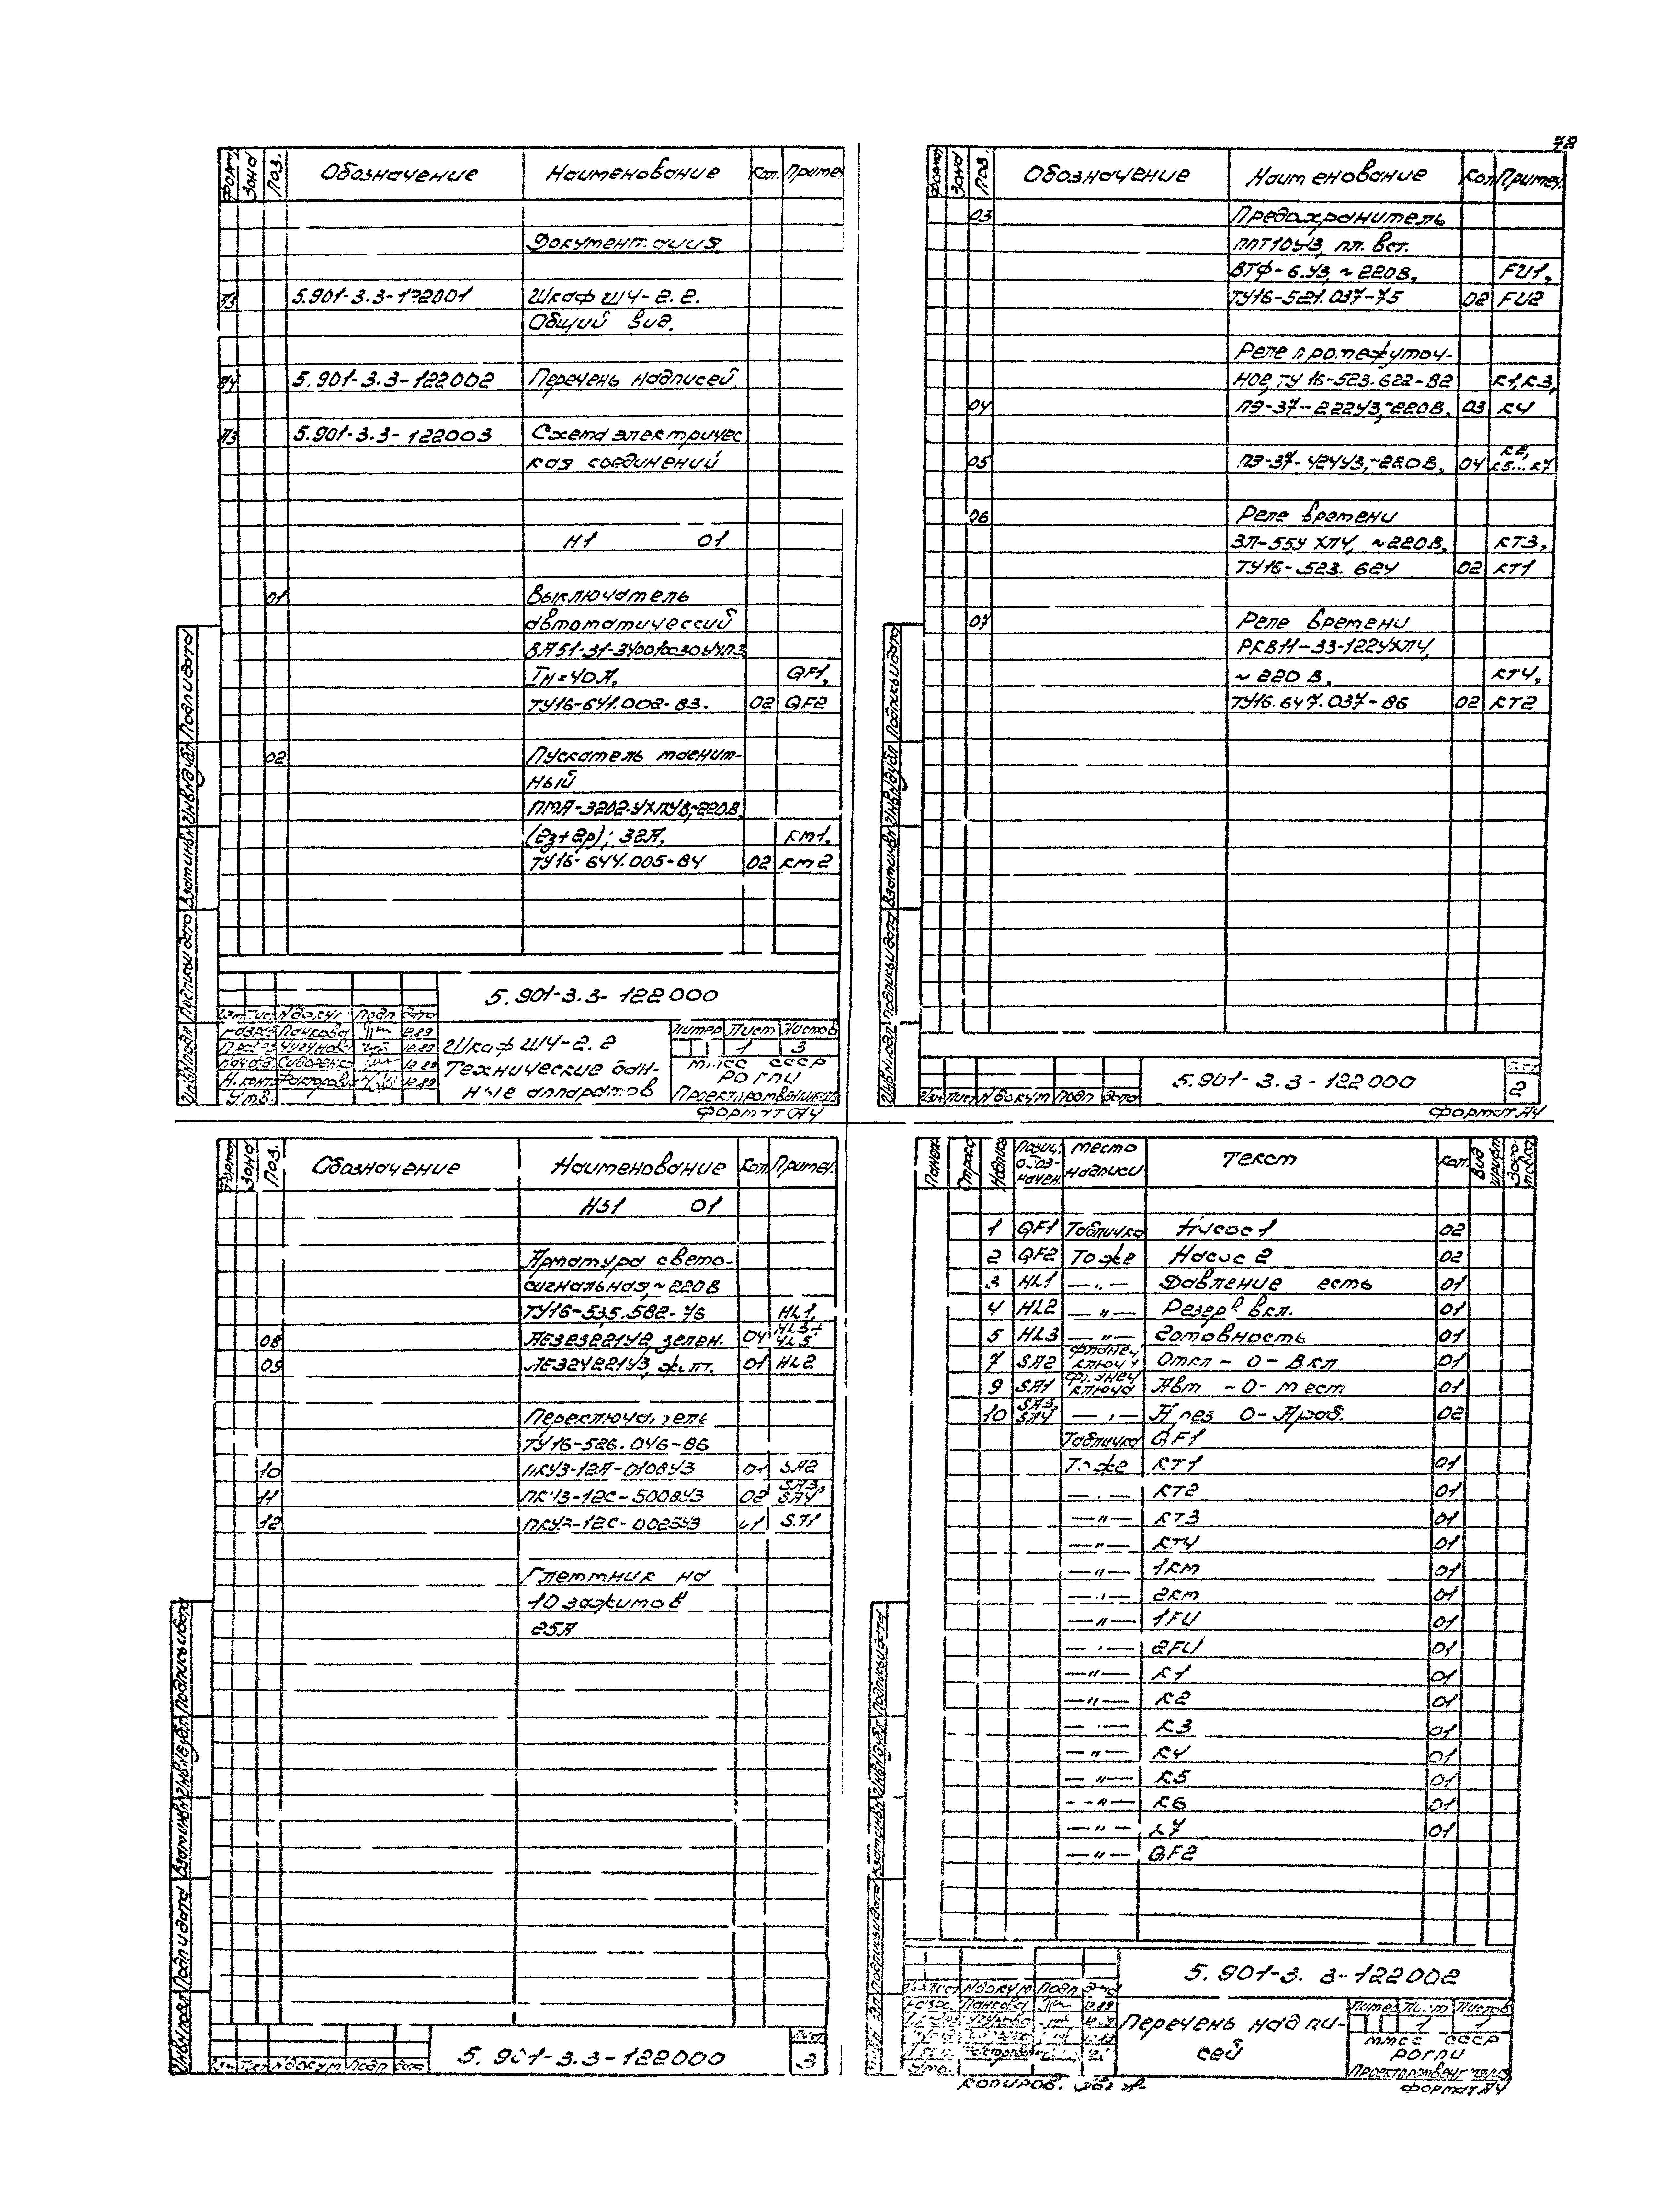 72
Формат Зона Поз. Обозначение Наименование Кол. Примеч.
Документация
А3 5.901-3.3-122001 Шкаф ШУ-2.2.
Общий вид.
А4 5.901-3.3-122002 Перечень надписей
А3 5.901-3.3-122003 Схема электричес
кая соединений
Н1 01
01 Выключатель
автоматический
Iн=40А, QF1,
ТУ16-641.002-83. 02 QF2
02 Пускатель магнит-
ный
(2з+2р); 32А, КМ1,
ТУ16-644.005-84 02 КМ2
5.901-3.3-122000
Изм Лист № докум Подп Дата
Панкова 12.89
12.89
12.89
Н.конт 12.89
Утв.
Шкаф ШУ-2.2
Технические дан-
ные аппаратов
Литер Лист Листов
1 3
ММСС СССР
РОГПИ
Формат А4
Инв№подл Подпись и дата Взам инв№ Инв№дубл Подпись и дата
Формат Зона Поз. Обозначение Наименование Кол Примеч.
03 Предохранитель
ППТ10У3, пл. вст.
ВТФ-6.У3, ~220В, FU1,
ТУ16-521.037-75 02 FU2
Реле промежуточ-
ное, ТУ 16-523.622-82 К1, К3,
04 ПЭ-37-222У3,~220В, 03 К4
К2,
05 ПЭ-37-424У3,~220В, 04 К5...К7
06 Реле времени
ВЛ-55У ХЛ4, ~220В, КТ3,
ТУ16-523.624 02 КТ1
07 Реле времени
РКВ11-33-122УХЛ4,
~220 В, КТ4,
ТУ16.647.037-86 02 КТ2
5.901-3.3-122000
Изм Лист № докум Подп Дата
Лист
2
Формат А4
Инв№подл Подпись и дата Взам инв№ Инв№дубл Подпись и дата
Формат Зона Поз. Обозначение Наименование Кол. Примеч.
HS1 01
Арматура свето-
сигнальная,~220В
ТУ16-535.582-76 HL1,
08 АЕ323221У2, зелен. 04 HL3÷
HL5
09 01 HL2
Переключатель
ТУ16-526.046-86
10 ПКУ3-12А-0108У3 01 SA2
11 ПКУ3-12С-5008У3 02 SA3,
SA4
12 ПКУ3-12С-0025У3 01 SA1
на
10 зажимов
25А
5.901-3.3-122000
Изм Лист № докум Подп Дата
Лист
3
Инв№подл Подп и дата Взам инв№ Инв№дубл Подпись и дата
Панель Строка Надпись Позиц. обоз-
начен. Место
надписи Текст Кол. Вид
шрифт Заго-
товка
1 QF1 Табличка Насос 1 02
2 QF2 То же Насос 2 02
3 HL1 —„— Давление есть 01
4 HL2 —„— Резерв вкл. 01
5 HL3 —„— Готовность 01
7 SA2 фланец
ключа Откл - О - Вкл 01
9 SA1 фланец
ключа Авт - О - Мест 01
10 SA3,
SA4 —„— 02
Табличка QF1
То же КТ1 01
—„— КТ2 01
—„— КТ3 01
—„— КТ4 01
—„— 1КМ 01
—„— 2КМ 01
—„— 1FU 01
—„— 2FU 01
—„— К1 01
—„— К2 01
—„— К3 01
—„— К4 01
—„— К5 01
—„— К6 01
—„— К7 01
—„— QF2
5.901-3.3-122002
Изм Лист № докум Подп Дата
Панкова 12.89
Утв.
Перечень надпи-
сей
Литер Лист Листов
1 1
ММСС СССР
РОГПИ
Формат А4
Копиров.